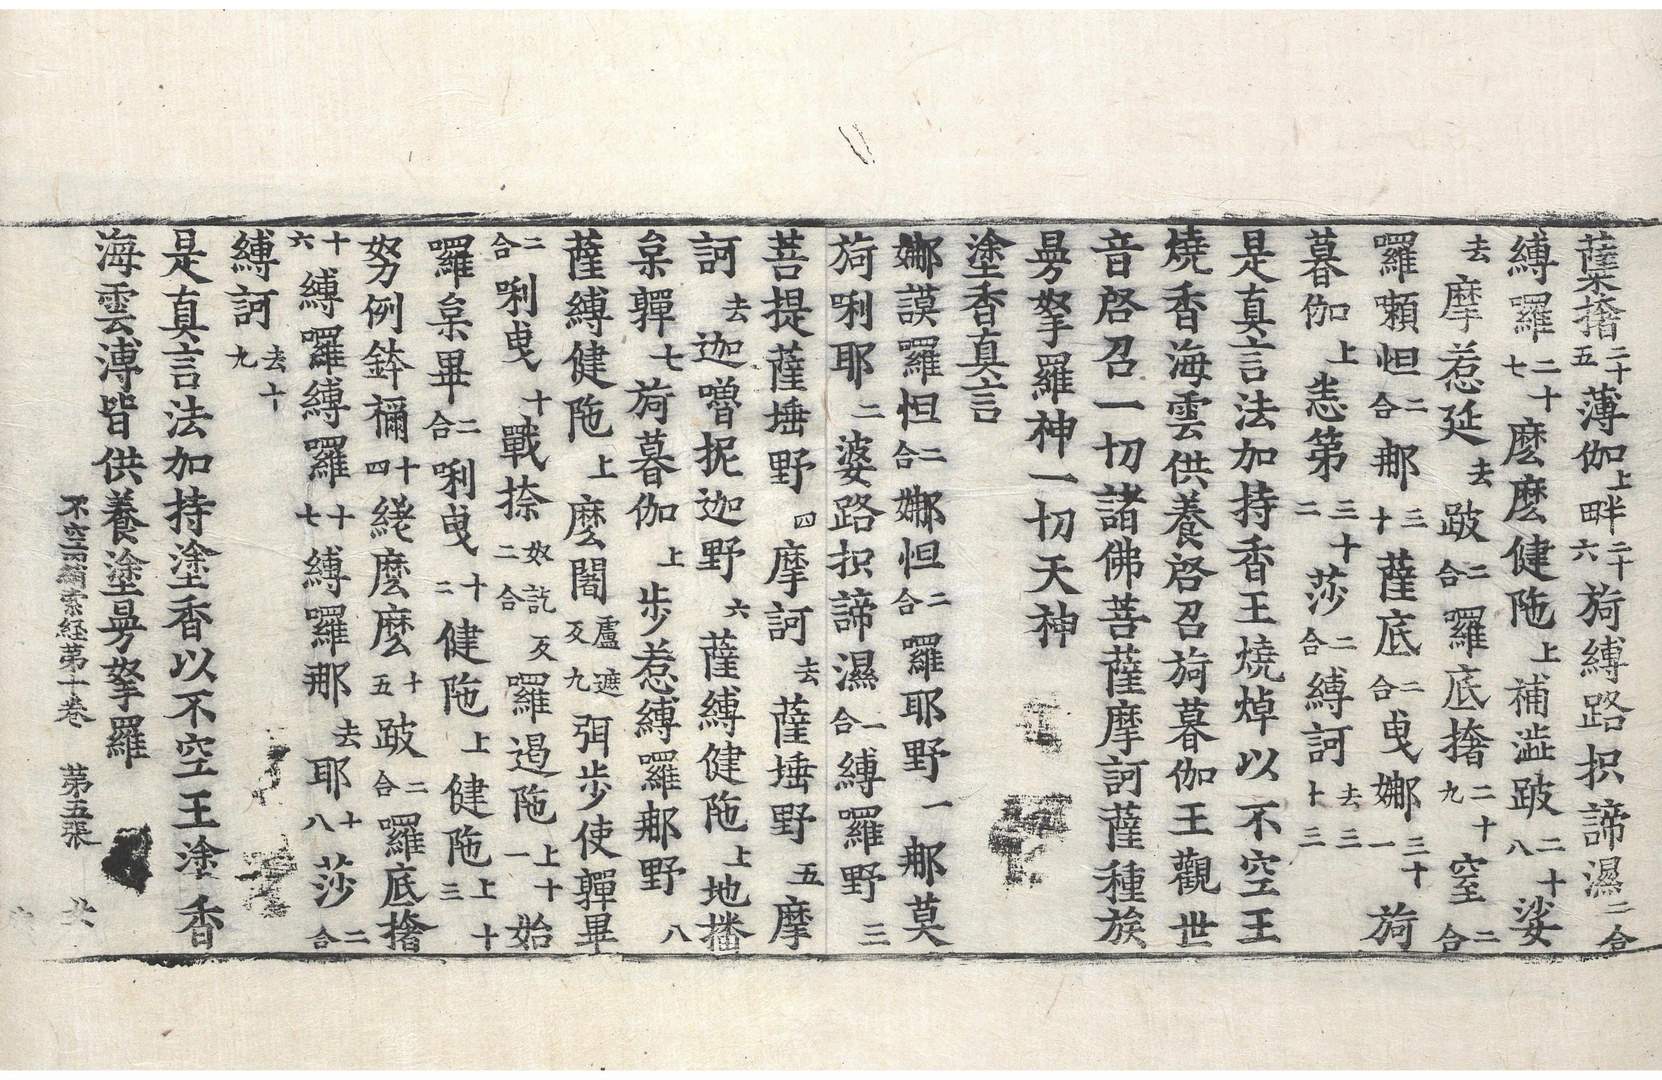 薩𣑥擔二十五薄伽上畔二十六旖縛路抧諦濕二合
縛囉二十七麼麼健陁上補澁跛二十八娑
去摩惹延去跛二合囉底擔二十九窒二合
囉嬾怛二合那三十薩底二合曳娜三十一旖
暮伽上恙第三十二莎二合縛訶去三十三
是真言法加持香王燒焯以不空王
燒香海雲供養启召旖暮伽王觀世
音启召一切諸佛菩薩摩訶薩種族
曼拏羅神一切天神
塗香真言
娜謨囉怛二合娜怛二合囉耶野一那莫
旖唎耶二婆路抧諦濕二合縛囉野三
菩提薩埵野四摩訶去薩埵野五摩
訶去迦嚕抳迦野六薩縛健陁上地播
皃鞸七旖暮伽上步惹縛囉那野八
薩縛健陁上麼闍廬遮反九弭步使鞸畢
二合唎曳十戰捺奴訖反二合囉遏陁上十一始
囉皃畢二合唎曳十二健陁上健陁上十三
努例鉢禰十四繞麼麼十五跛二合囉底擔
十六縛囉縛囉十七縛囉那去耶十八莎二合
縛訶去十九
是真言法加持塗香以不空王塗香
海雲溥皆供養塗曼拏羅
不空羂索経第十卷　第五張　共